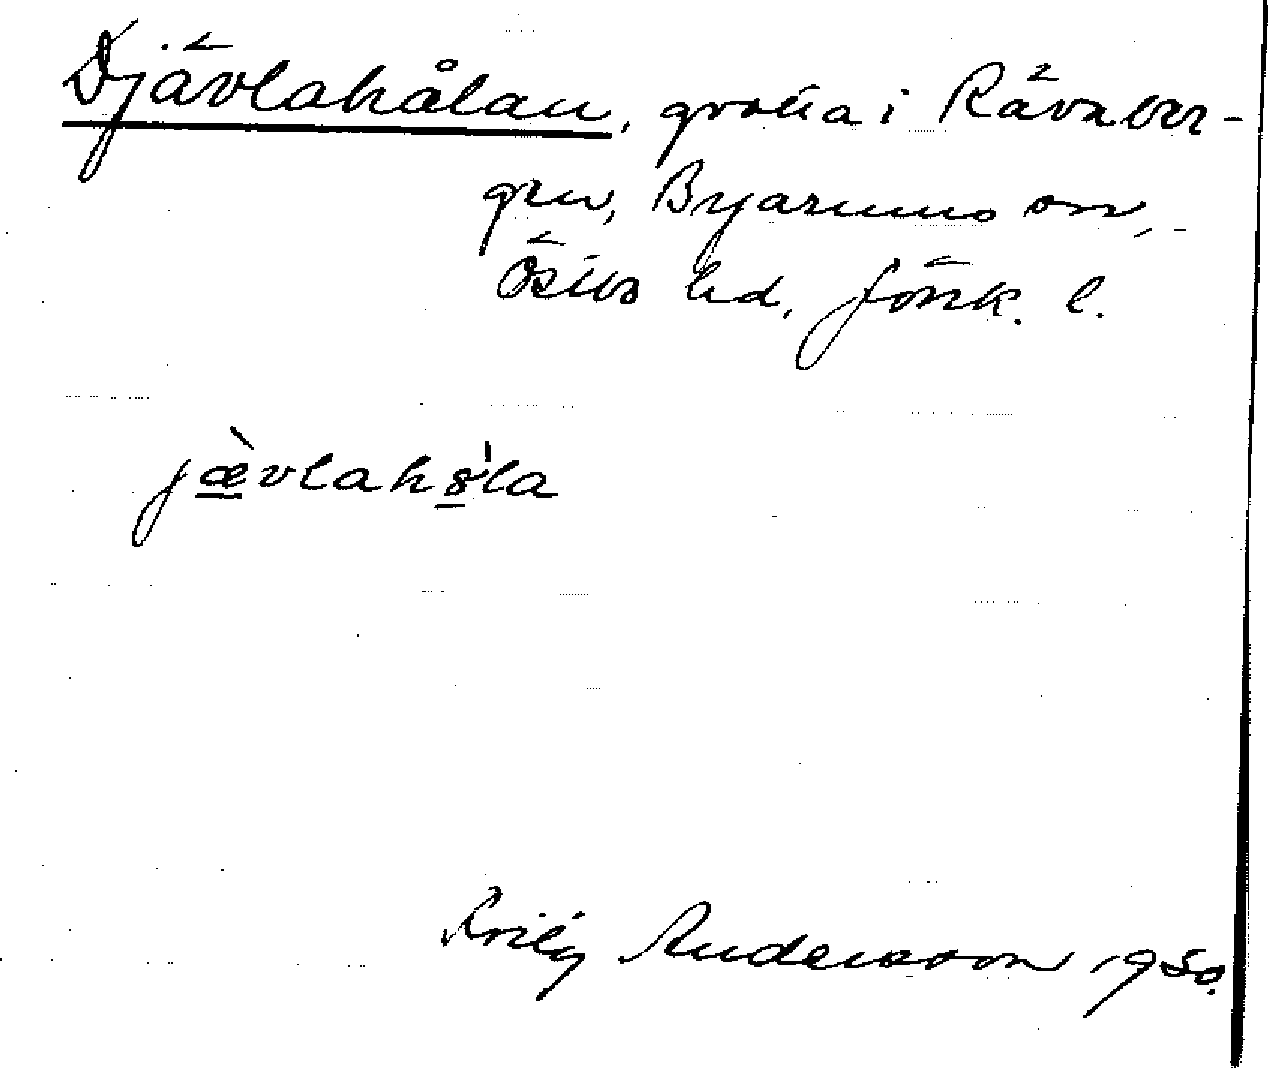 Djävlahålan, grotta i Rävaber-
gen, Byarums sn,
Östbo hd, Jönk. l.
jæ̀vlahs̍la
Andersson 1950.